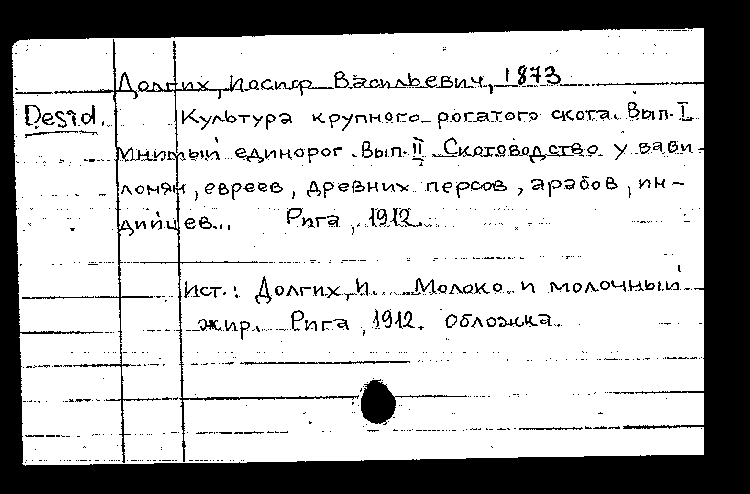 Долгих, Иосиф Васильевич, 1873
Desid. Культура крупного рогатого скота. Вып. I
Мнимый единорог. Вып. II. Скотоводство у вави-
лонян, евреев, древних персов, арабов, ин-
дийцев... Рига, 1912.
Ист.: Долгих, И. Молоко и молочный
жир. Рига, 1912. Обложка.